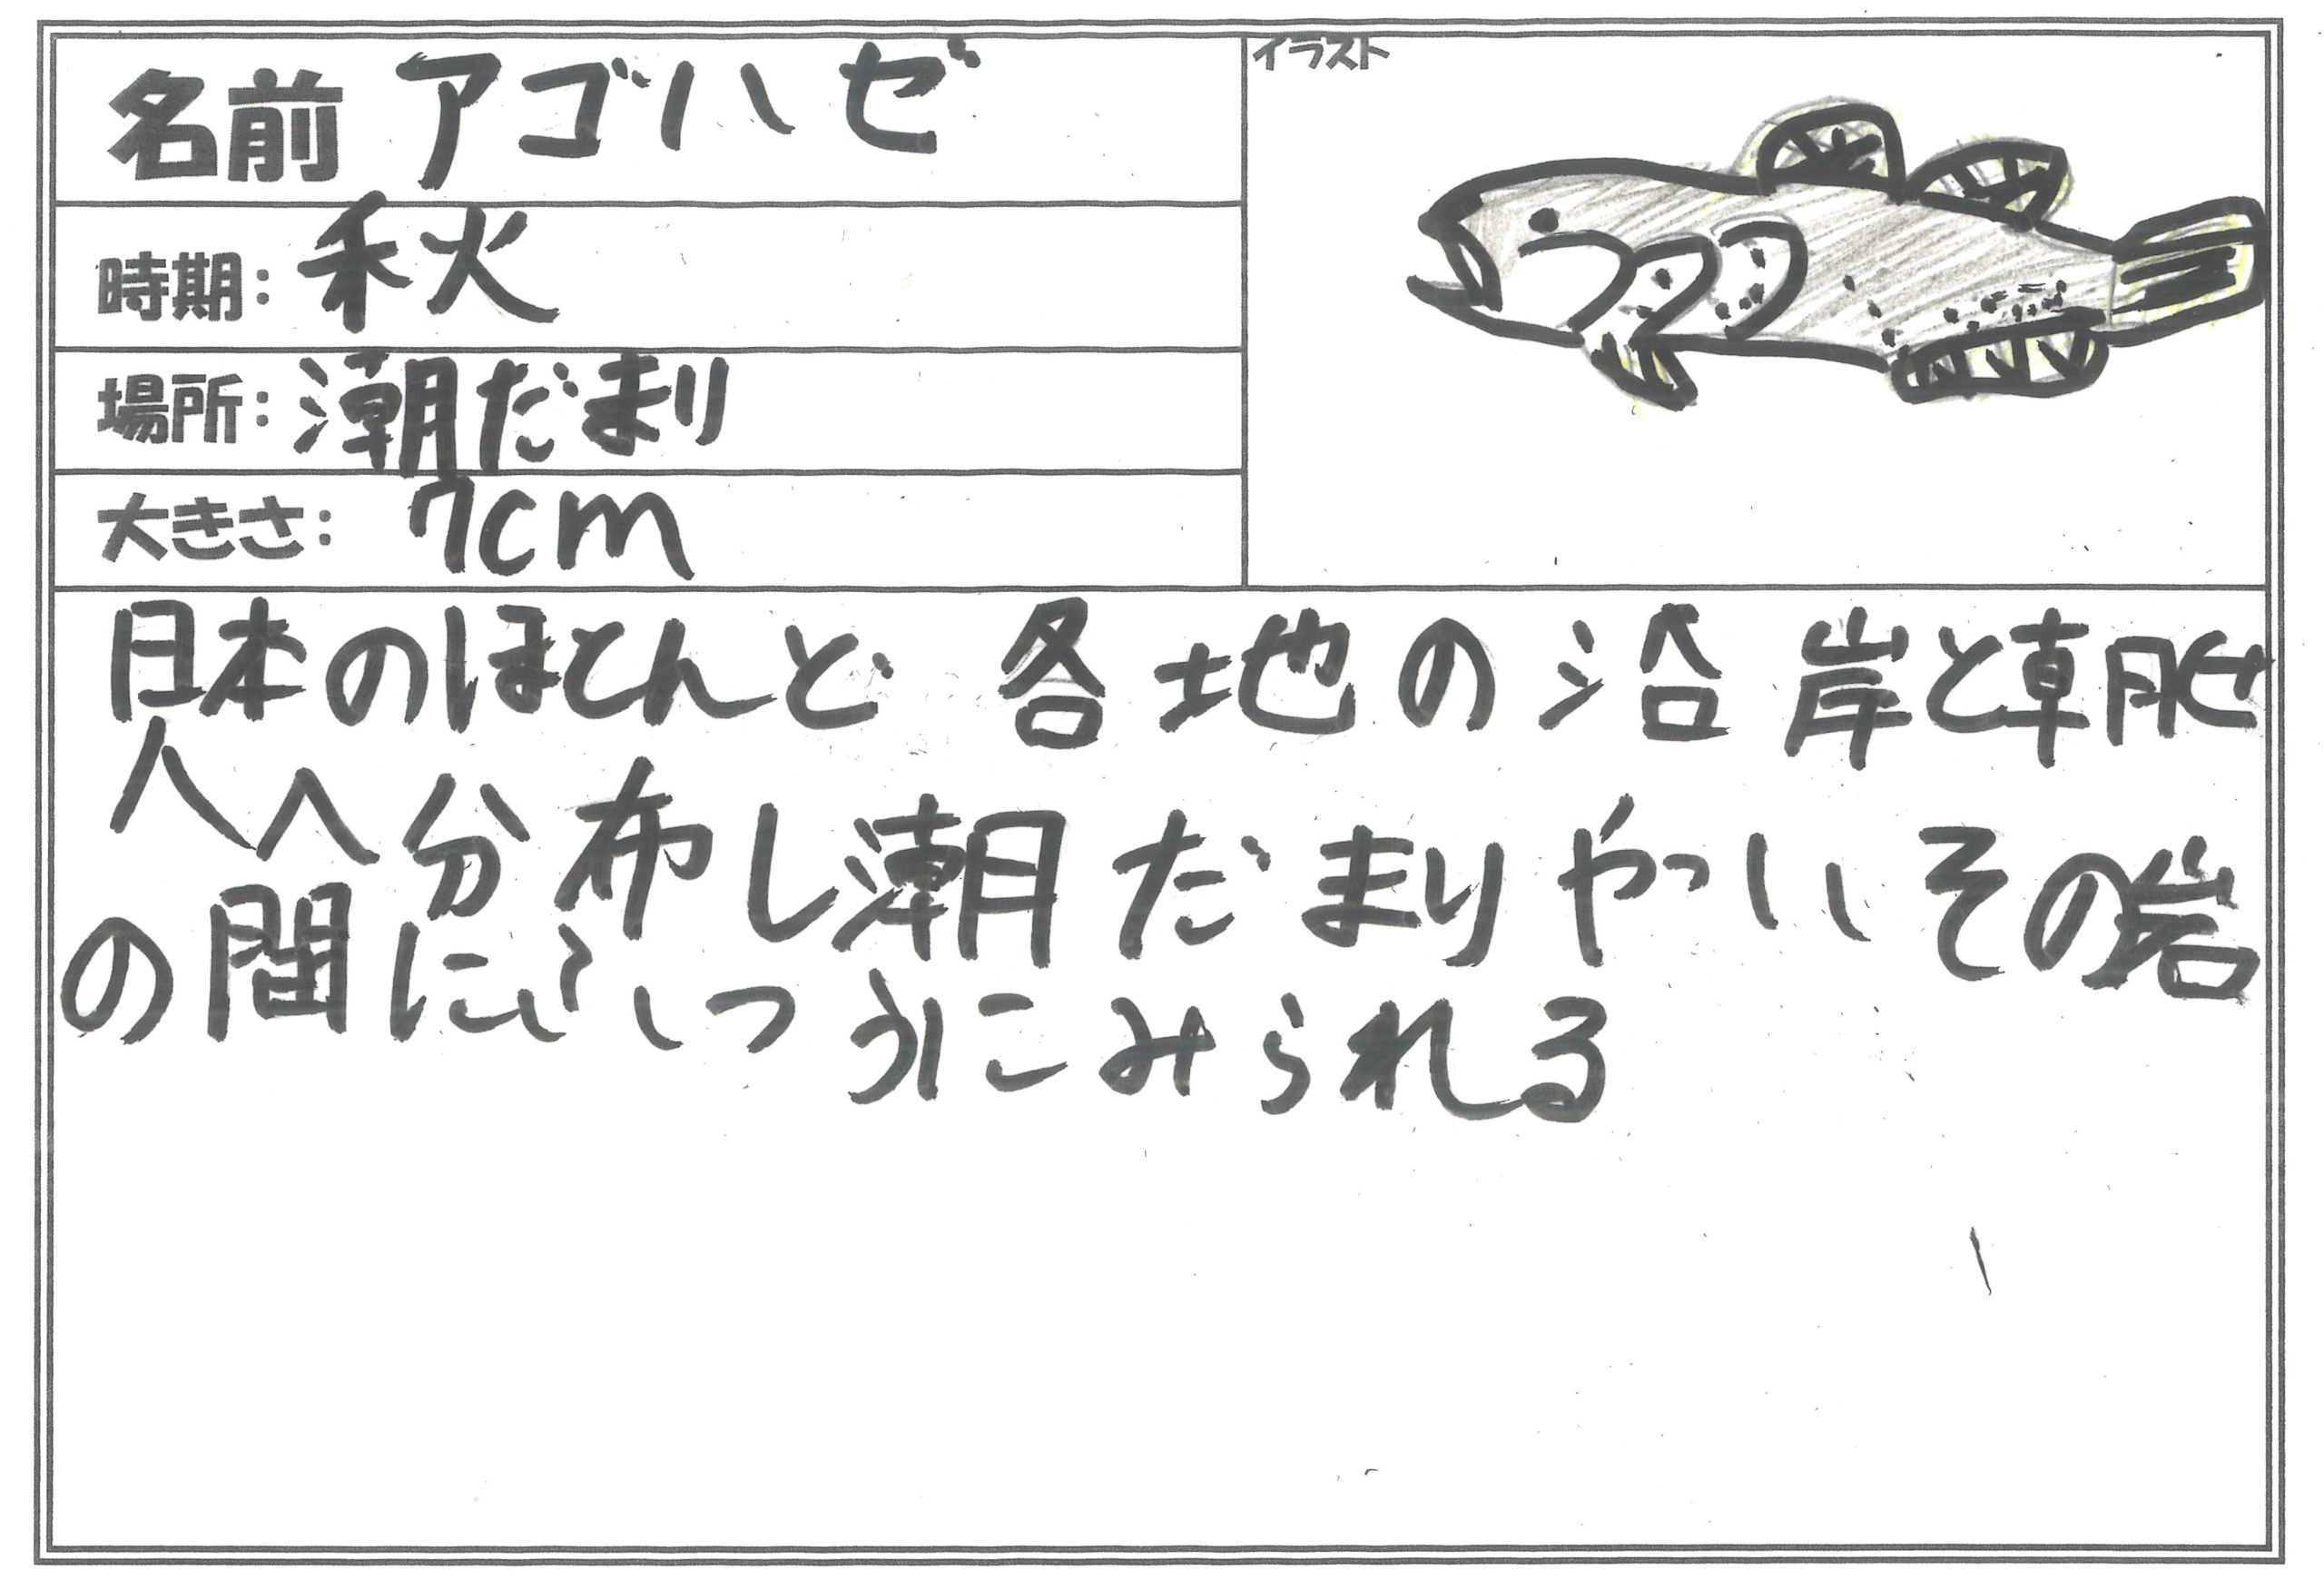 名前 アゴハゼ
イラスト
時期: 秋
場所: 潮だまり
大きさ: 7cm
日本のほとんど各地の沿岸と朝せ
人へ分布し潮だまりやっいその岩
の間につうにみられる